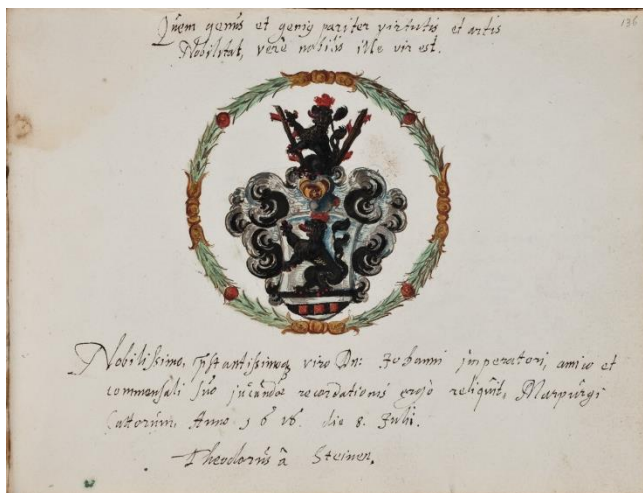 Quem genus et genius pariter virtutis et artis
Nobilitat, vere nobilis ille vir est.
136
Nobilissimo, viro Dn: Johanni imperatori, amico et
commensali suo jucundae recordationis ergo reliquit, Marpurgi
Cattorum, Anno 1616. die 8. Julii.
Theodorus â Steinen.